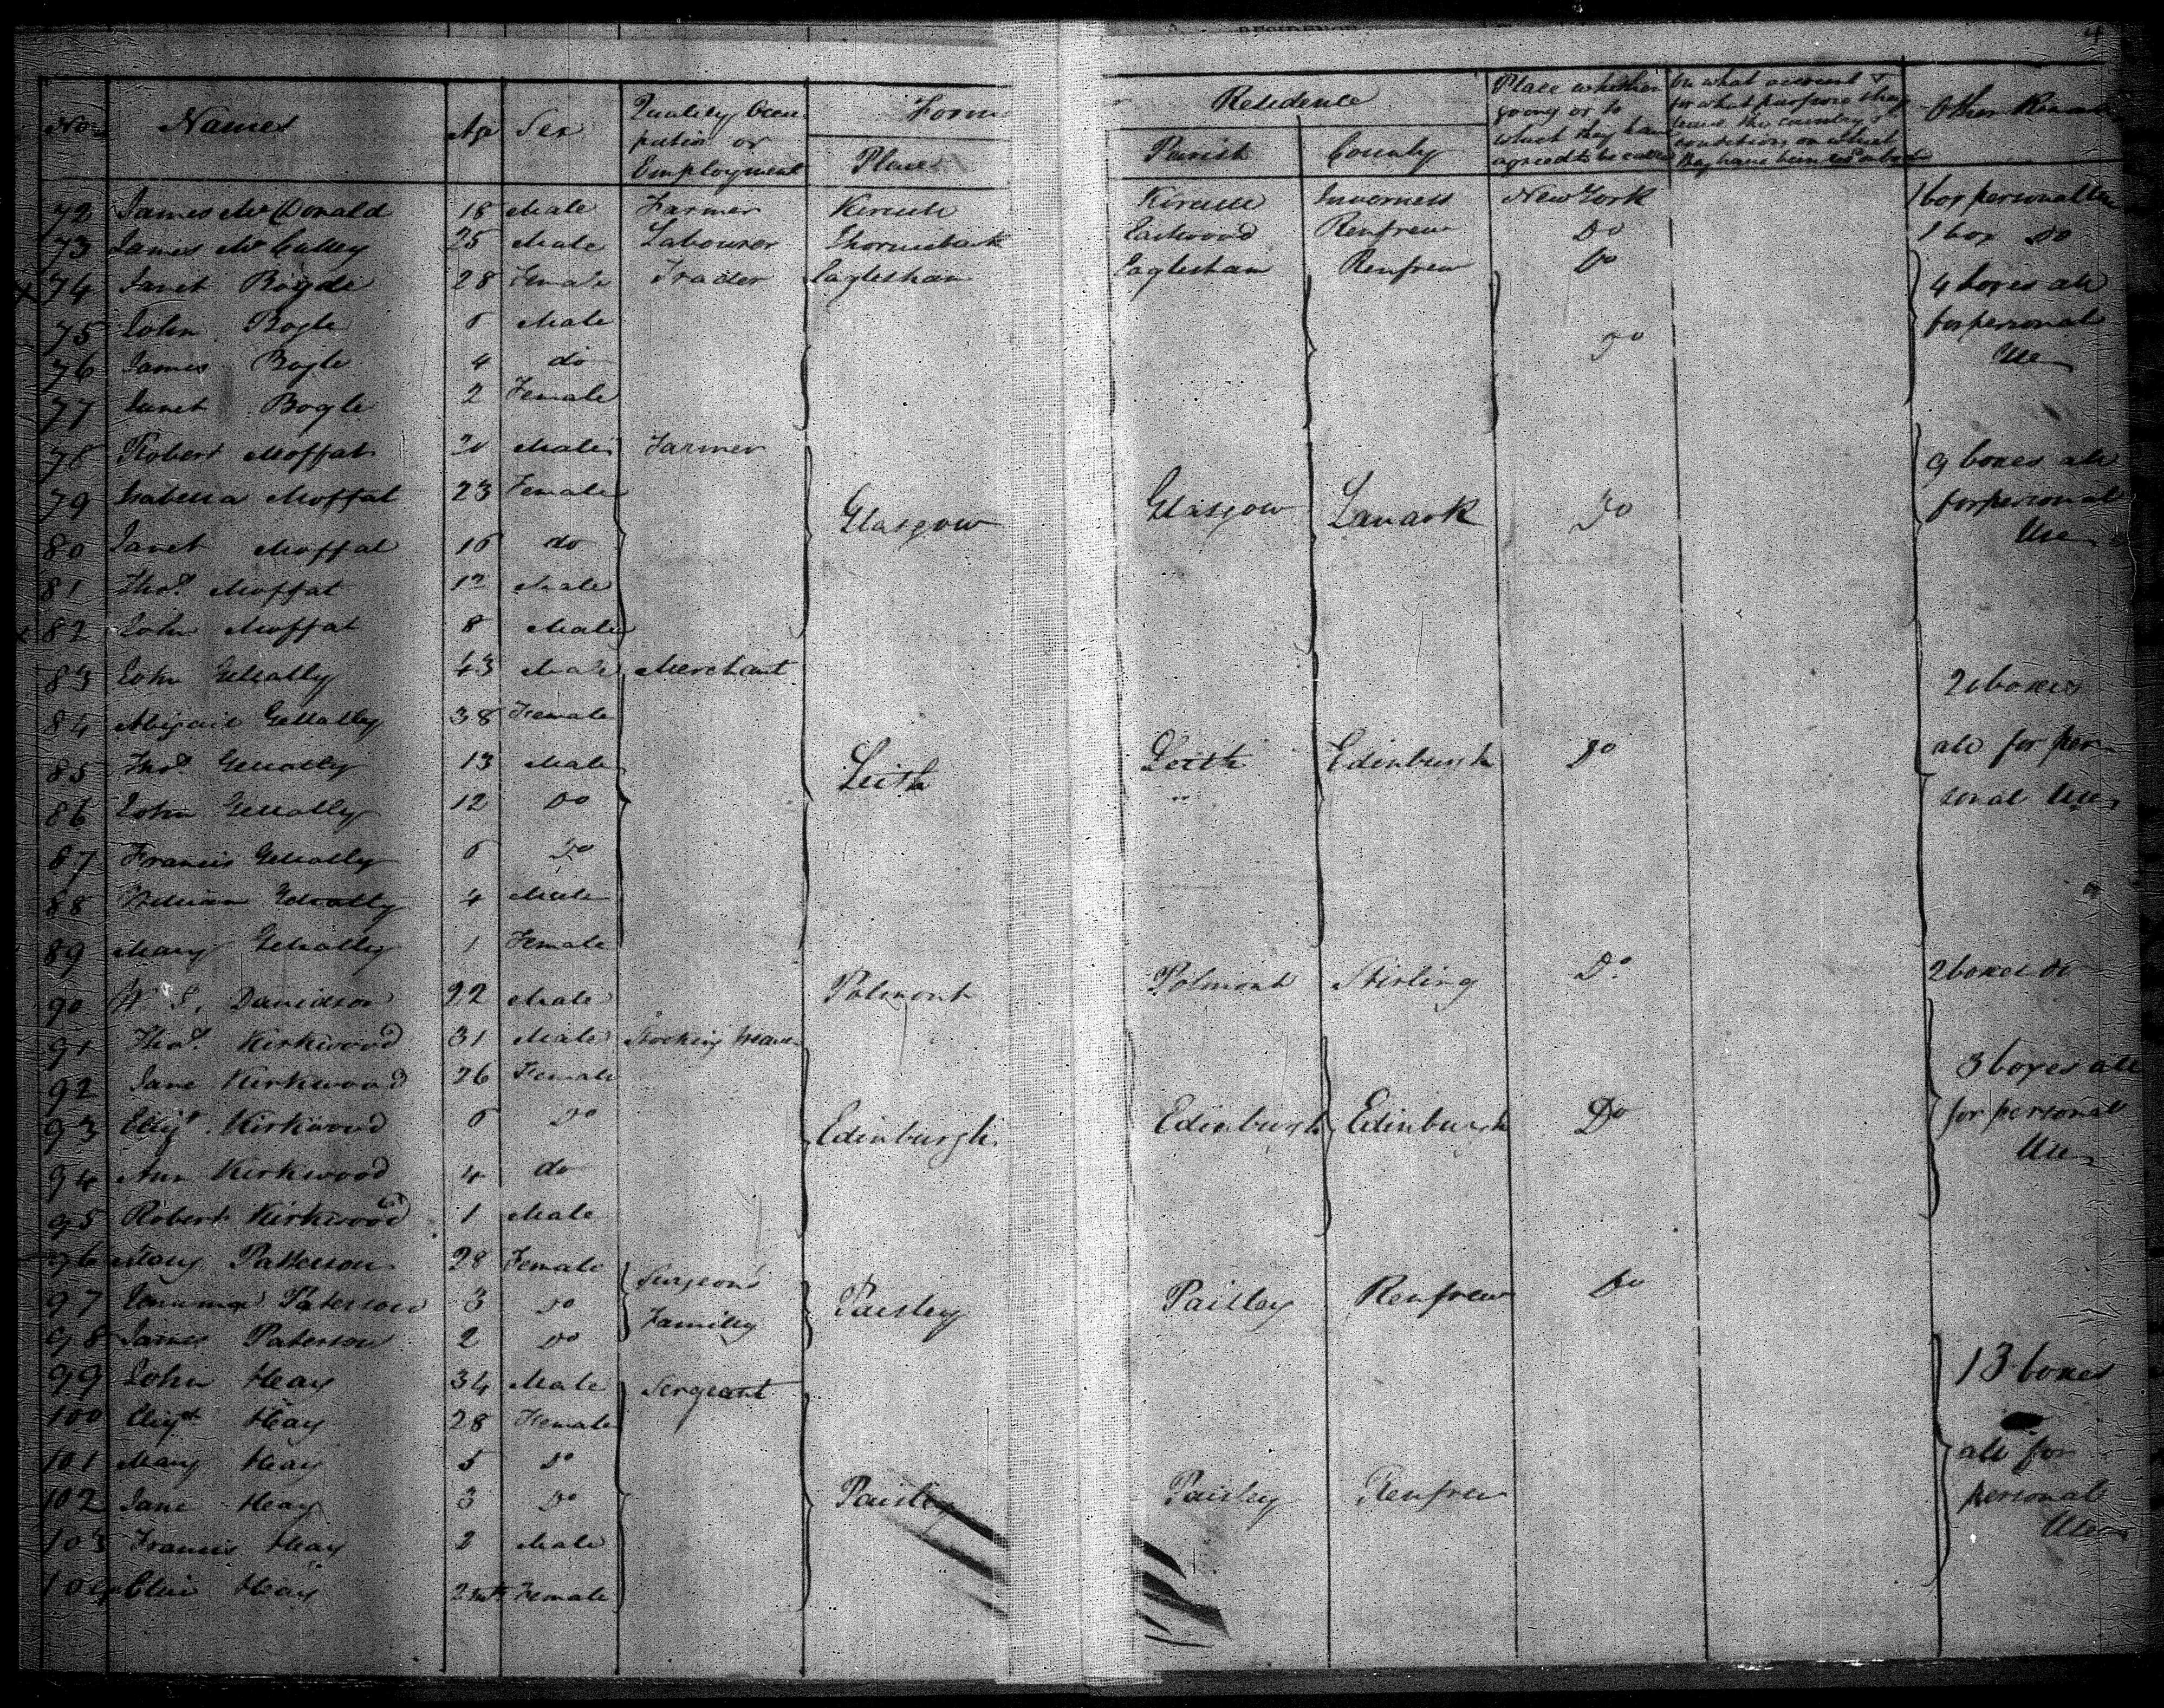 No. Names Age Sex Quality Occupation or Employment Former Residence
Place Parish County Place whither going or to which they have agreed to be carried On what account & for what purpose they leave the country & conditions on which they have been Other Remarks
72 James McDonald 18 Male Farmer Inverness New York 1 box personal Use
73 James McCalley 25 Male Labourer Thornliebank Eastwood Renfrew Do 1 box Do
74 Janet Bogle 28 Female Trader Eaglesham Eaglesham Renfrew Do 4 boxes all
75 John Bogle 6 Male for personal
76 James Bogle 4 do Do Use
77 Janet Bogle 2 Female
78 Robert Moffat Male Farmer 9 boxes all
79 Isabella Moffat 23 Female Glasgow Glasgow Lanark Do for personal
80 Janet Moffat 16 do Use
81 Thos. Moffat 12 Male
82 John Moffat 8 Male
83 John Gellatly 43 Male Merchant boxes
84 Abigail Gellatly 38 Female all for per
85 Thos. Gellatly 13 Male Leith Leith Edinburgh Do sonal Use
86 John Gellatly 12 Do
87 Francis Gellatly 6 Do
88 William Gellatly 4 Male
89 Mary Gellatly 1 Female
90 Davidson 22 Male Polmont Polmont Stirling Do 2 boxes do
91 Thos. Kirkwood 31 Male Stocking Weaver 3 boxes all
92 Jane Kirkwood 26 Female
93 Elizt. Kirkwood 6 Do Edinburgh Edinburgh Edinburgh Do for personal
94 Ann Kirkwood 4 do Use
95 Robert Kirkwood 1 Male
96 Mary Patterson 28 Female Surgeon's
97 Paterson 3 Do Family Paisley Paisley Renfrew Do
98 James Paterson 2 Do
99 John Hay 34 Male Sergeant 13 boxes
100 Elizt Hay 28 Female
101 Mary Hay 5 Do all for
102 Jane Hay 3 Do Paisley Paisley Renfrew personal
103 Francis Hay 2 Male Use
104 Hay 2 mth Female